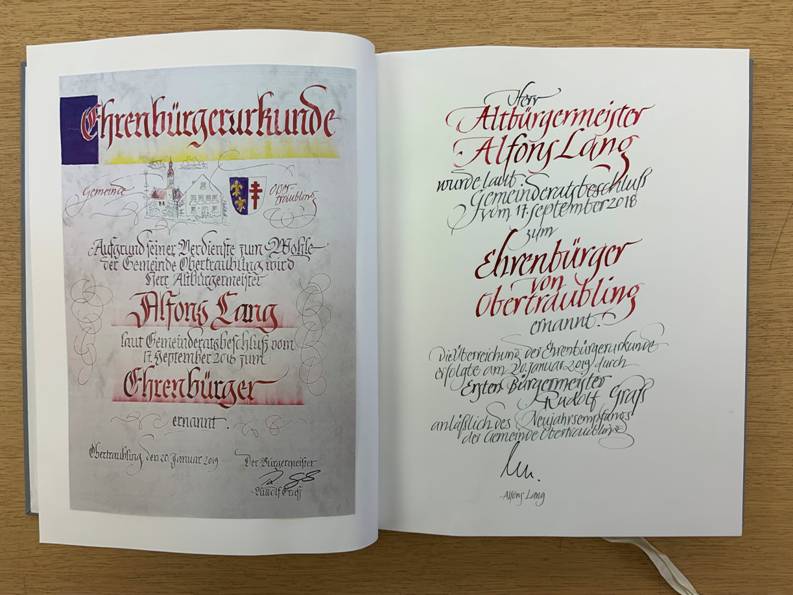 Ehrenbürgerurkunde
Gemeinde
Ober
traubling
Aufgrund seiner Verdienste zum Wohle
der Gemeinde Obertraubling wird
Herr Altbürgermeister
Alfons Lang
laut Gemeinderatsbeschluß vom
17. September 2018 zum
Ehrenbürger
ernannt.
Obertraubling den 20. Januar 2019
Der Bürgermeister
Rudolf Graß
Herr
Altbürgermeister
Alfons Lang
wurde laut
Gemeinderatsbeschluß
vom 17. September 2018
zum
Ehrenbürger
von
Obertraubling
ernannt.
Die Überreichung der Ehrenbürgerurkunde
erfolgte am 20. Januar 2019 durch
Ersten Bürgermeister
Rudolf Graß
anläßlich des Neujahrsempfanges
der Gemeinde Obertraubling
Alfons Lang